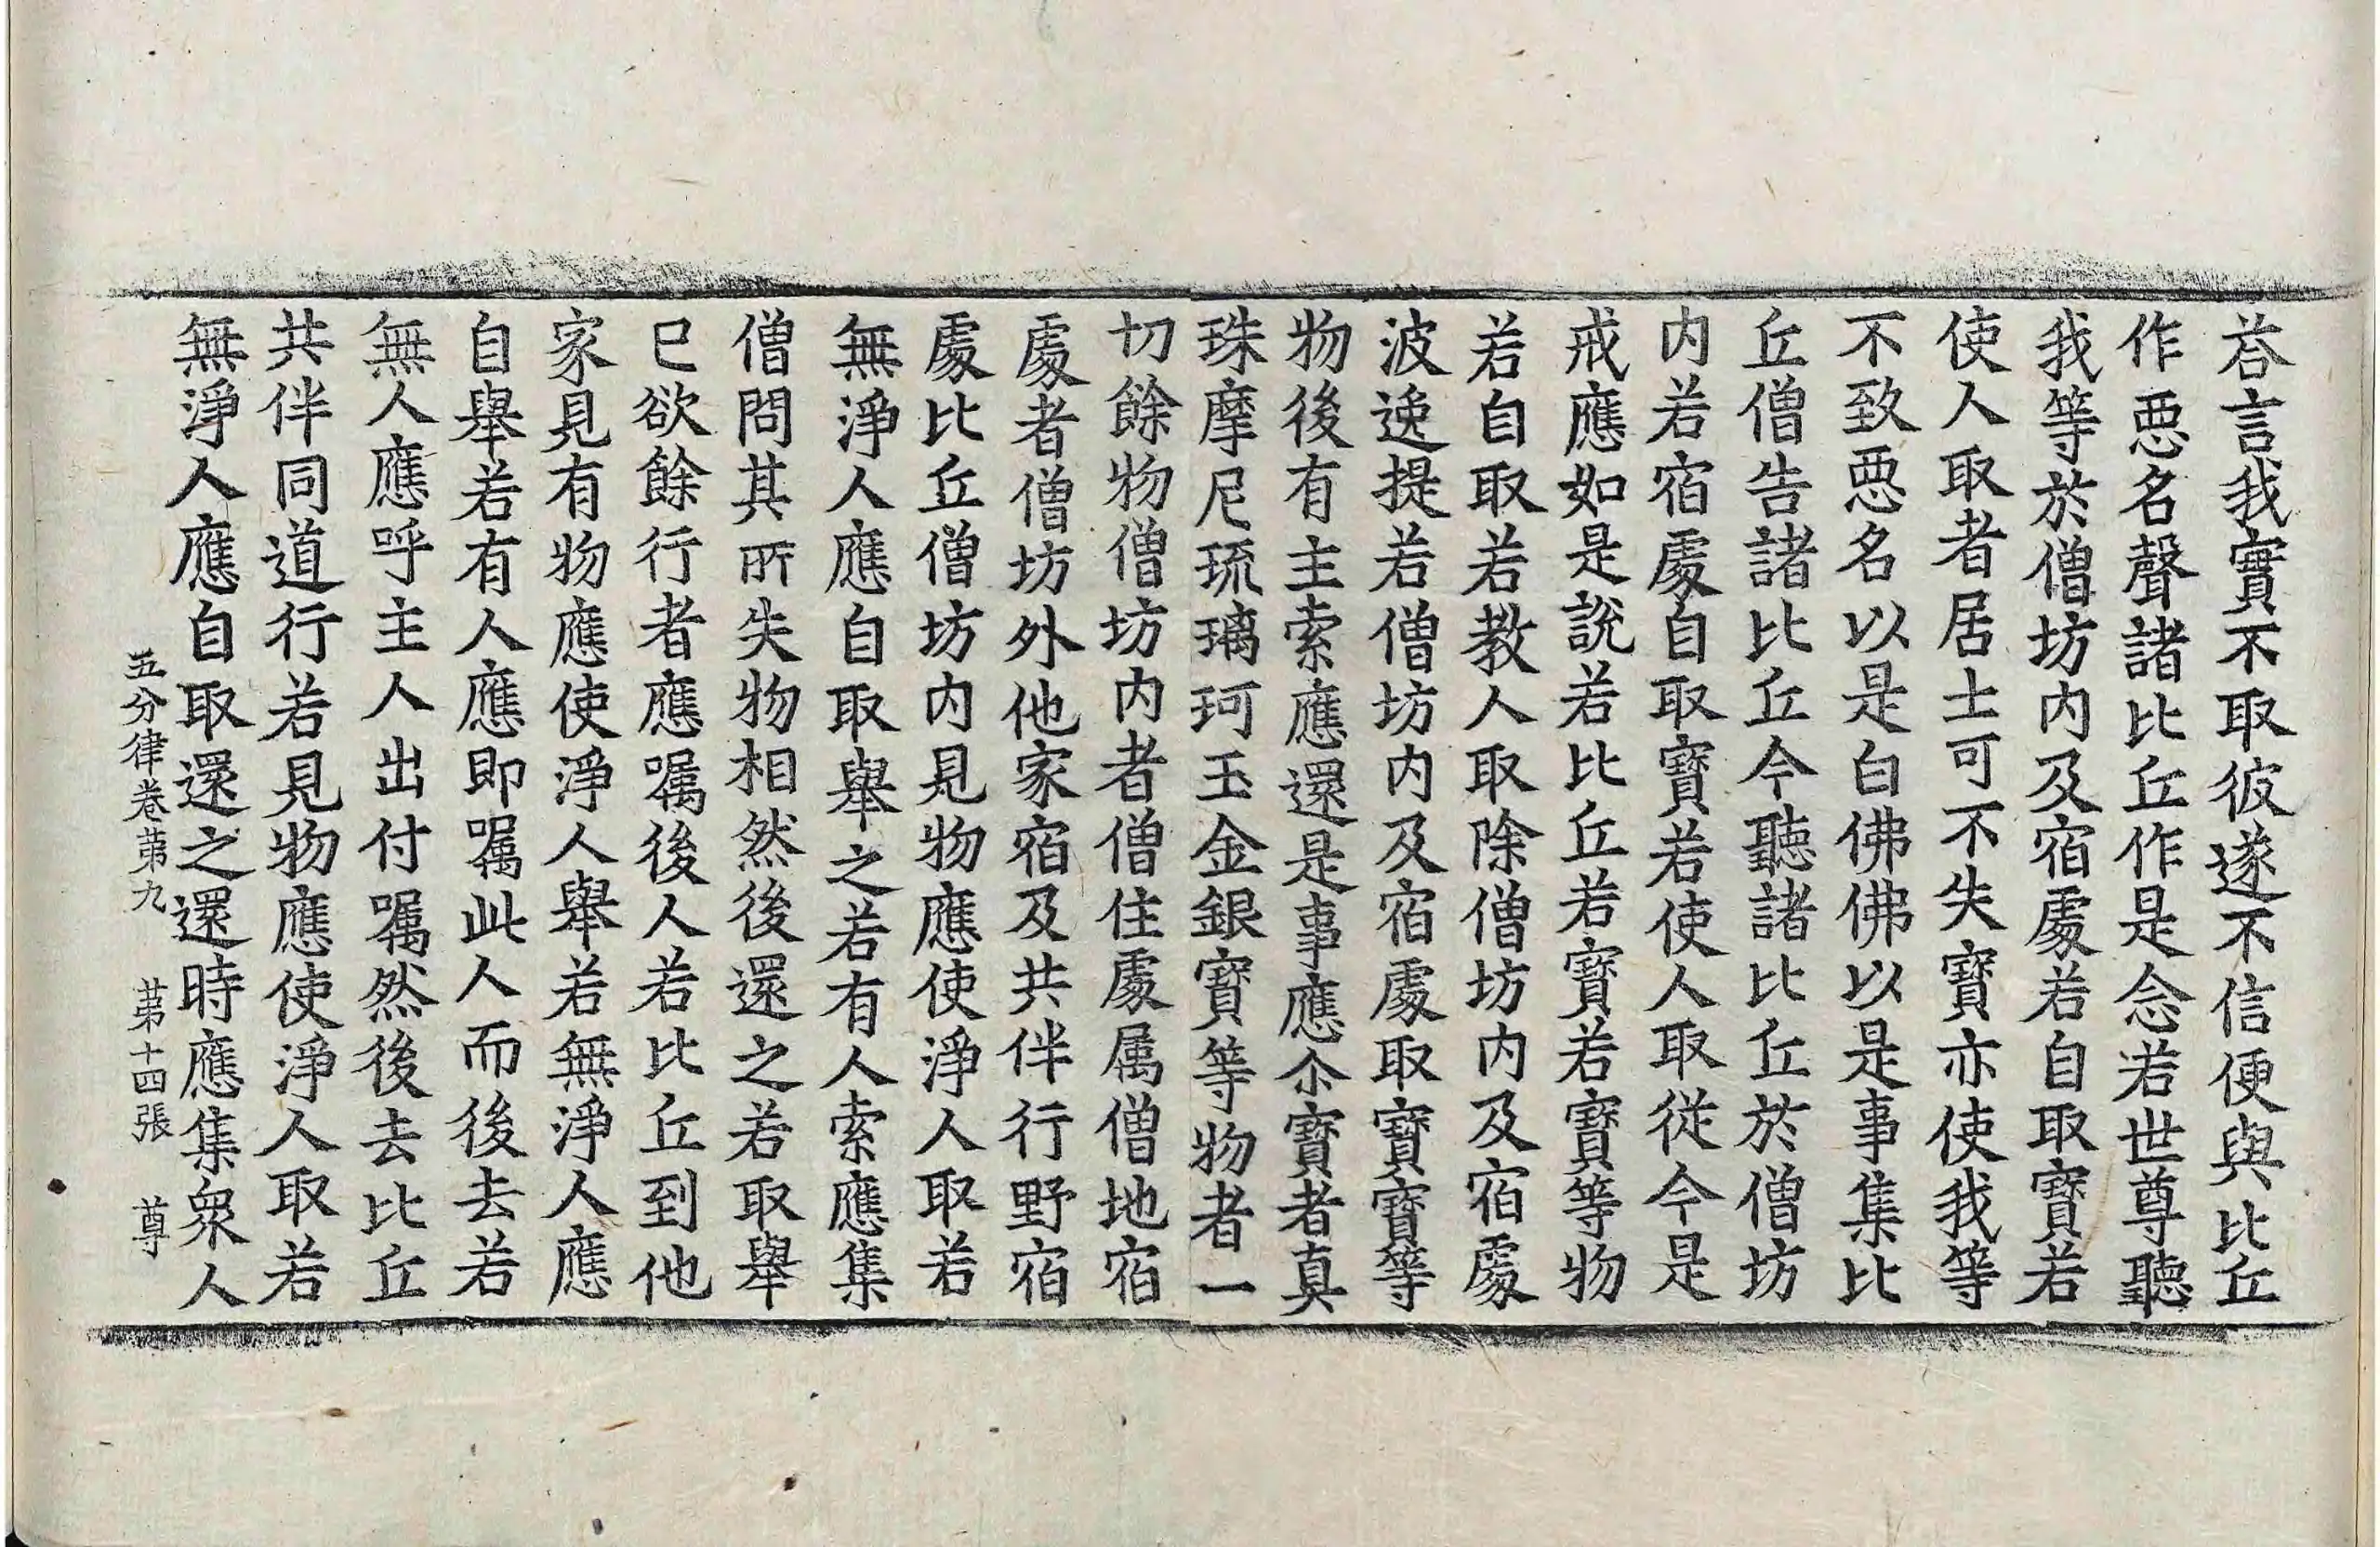 荅言我實不取彼遂不信便與比丘
作惡名聲諸比丘作是念若世尊聽
我等於僧坊内及宿處若自取寶若
使人取者居士可不失寶亦使我等
不致惡名以是白佛佛以是事集比
丘僧告諸比丘今聽諸比丘於僧坊
内若宿處自取寶若使人取從今是
戒應如是說若比丘若寶若寶等物
若自取若教人取除僧坊内及宿處
波逸提若僧坊内及宿處取寶寶等
物後有主索應還是事應尒寶者真
珠摩尼琉璃珂玉金銀寶等物者一
切餘物僧坊内者僧住處属僧地宿
處者僧坊外他家宿及共伴行野宿
處比丘僧坊内見物應使淨人取若
無淨人應自取舉之若有人索應集
僧問其所失物相然後還之若取舉
已欲餘行者應嘱後人若比丘到他
家見有物應使淨人舉若無淨人應
自舉若有人應即嘱此人而後去若
無人應呼主人出付嘱然後去比丘
共伴同道行若見物應使淨人取若
無淨人應自取還之還時應集衆人
五分律卷苐九 苐十四張 尊